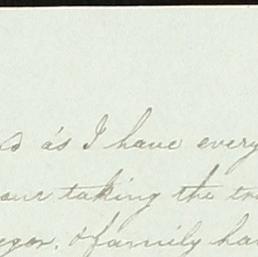 as I have every
your taking the
& family ha